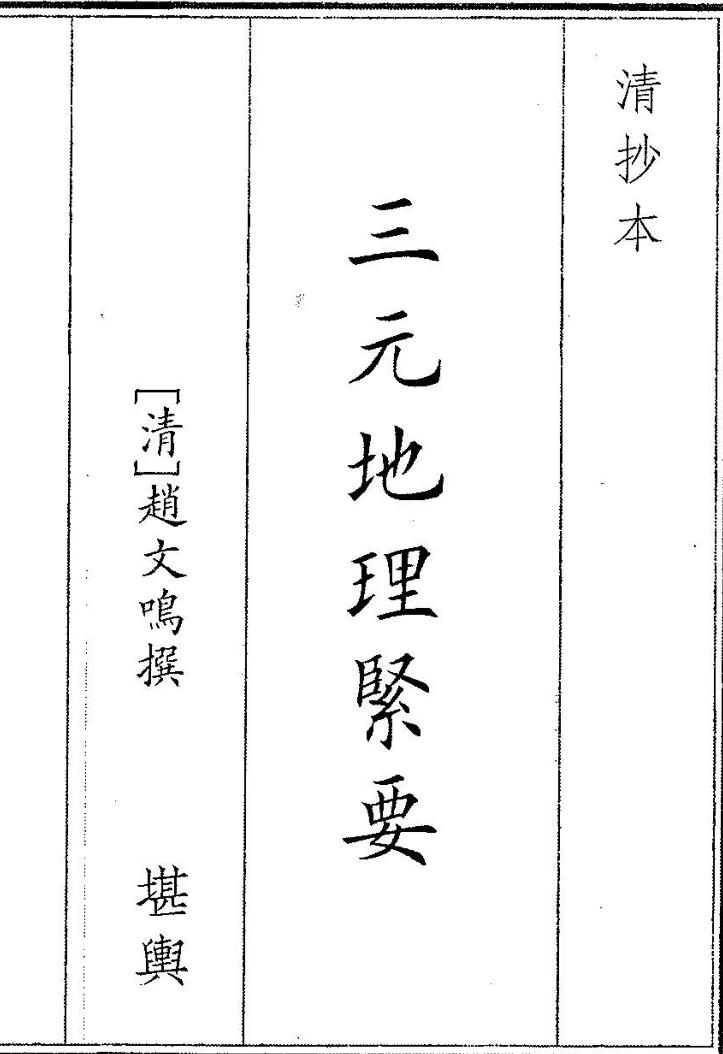 清抄本
三元地理緊要
［清］趙文鳴撰
堪輿